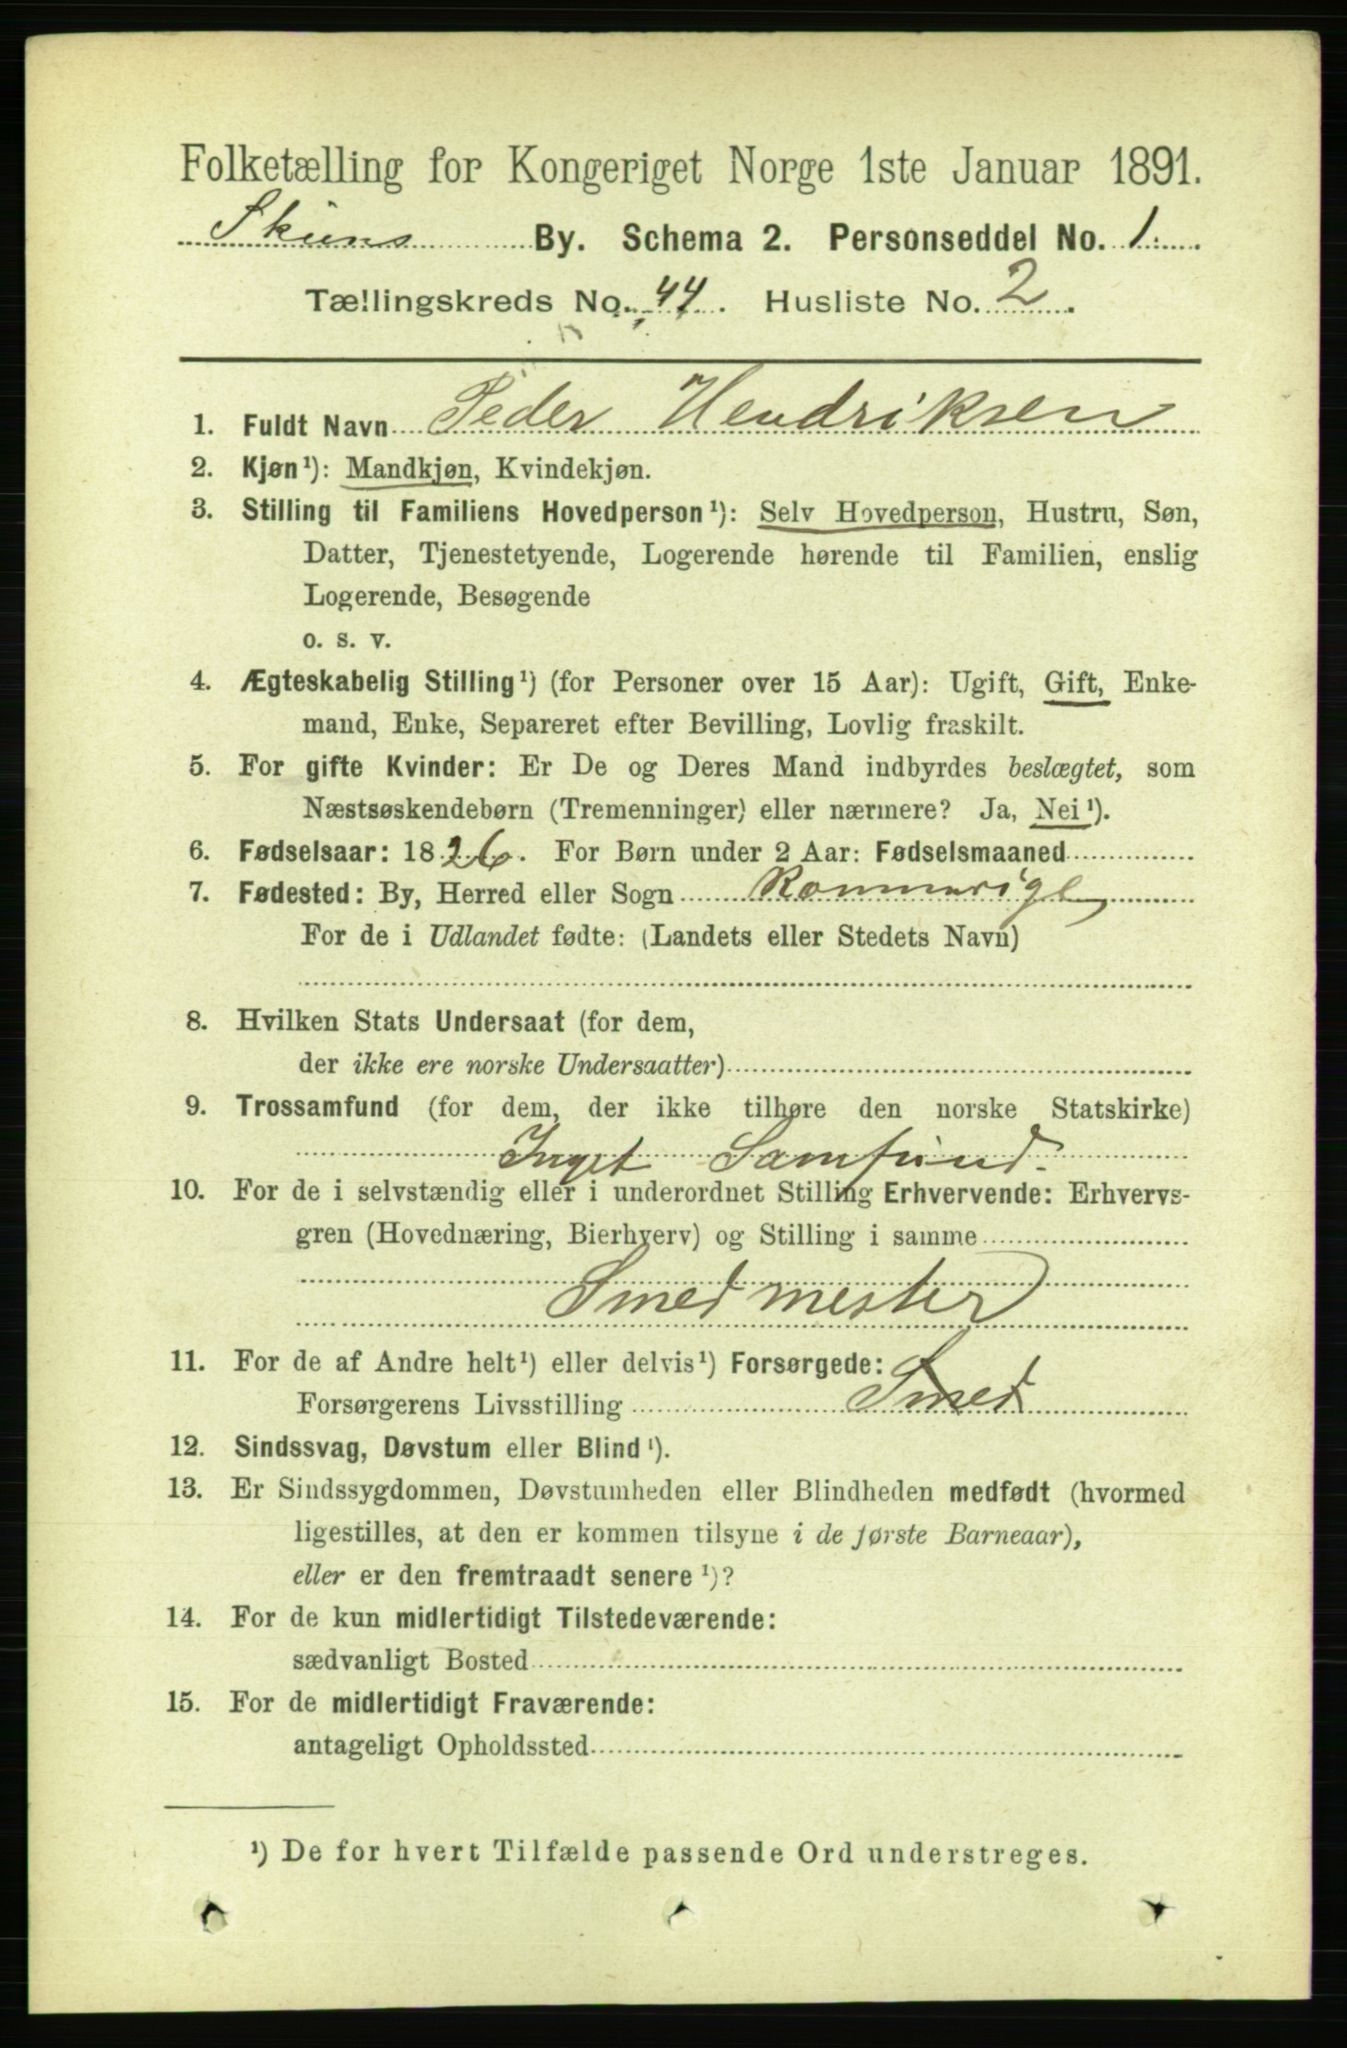 Folketælling for Kongeriget Norge 1ste Januar 1891.
Skiens By. Schema 2. Personseddel No. 1.
Tællingskreds No. 44. Husliste No. 2.
1. Fuldt Navn Peder Hendriksen
2. Kjøn¹): Mandkjøn, Kvindekjøn.
3. Stilling til Familiens Hovedperson¹): Selv Hovedperson, Hustru, Søn,
Datter, Tjenestetyende, Logerende hørende til Familien, enslig
Logerende, Besøgende
o. s. v.
4. Ægteskabelig Stilling¹) (for Personer over 15 Aar): Ugift, Gift, Enke-
mand, Enke, Separeret efter Bevilling, Lovlig fraskilt.
5. For gifte Kvinder: Er De og Deres Mand indbyrdes beslægtet, som
Næstsøskendebørn (Tremenninger) eller nærmere? Ja, Nei¹).
6. Fødselsaar: 1826. For Børn under 2 Aar: Fødselsmaaned
7. Fødested: By, Herred eller Sogn Rommerige
For de i Udlandet fødte: (Landets eller Stedets Navn)
8. Hvilken Stats Undersaat (for dem,
der ikke ere norske Undersaatter)
9. Trossamfund (for dem, der ikke tilhøre den norske Statskirke)
Inget Samfund.
10. For de i selvstændig eller i underordnet Stilling Erhvervende: Erhvervs-
gren (Hovednæring, Bierhverv) og Stilling i samme
Smedmester
11. For de af Andre helt¹) eller delvis¹) Forsørgede:
Forsørgerens Livsstilling Smed
12. Sindssvag, Døvstum eller Blind¹).
13. Er Sindssygdommen, Døvstumheden eller Blindheden medfødt (hvormed
ligestilles, at den er kommen tilsyne i de første Barneaar),
eller er den fremtraadt senere¹)?
14. For de kun midlertidigt Tilstedeværende:
sædvanligt Bosted
15. For de midlertidigt Fraværende:
antageligt Opholdssted
¹) De for hvert Tilfælde passende Ord understreges.